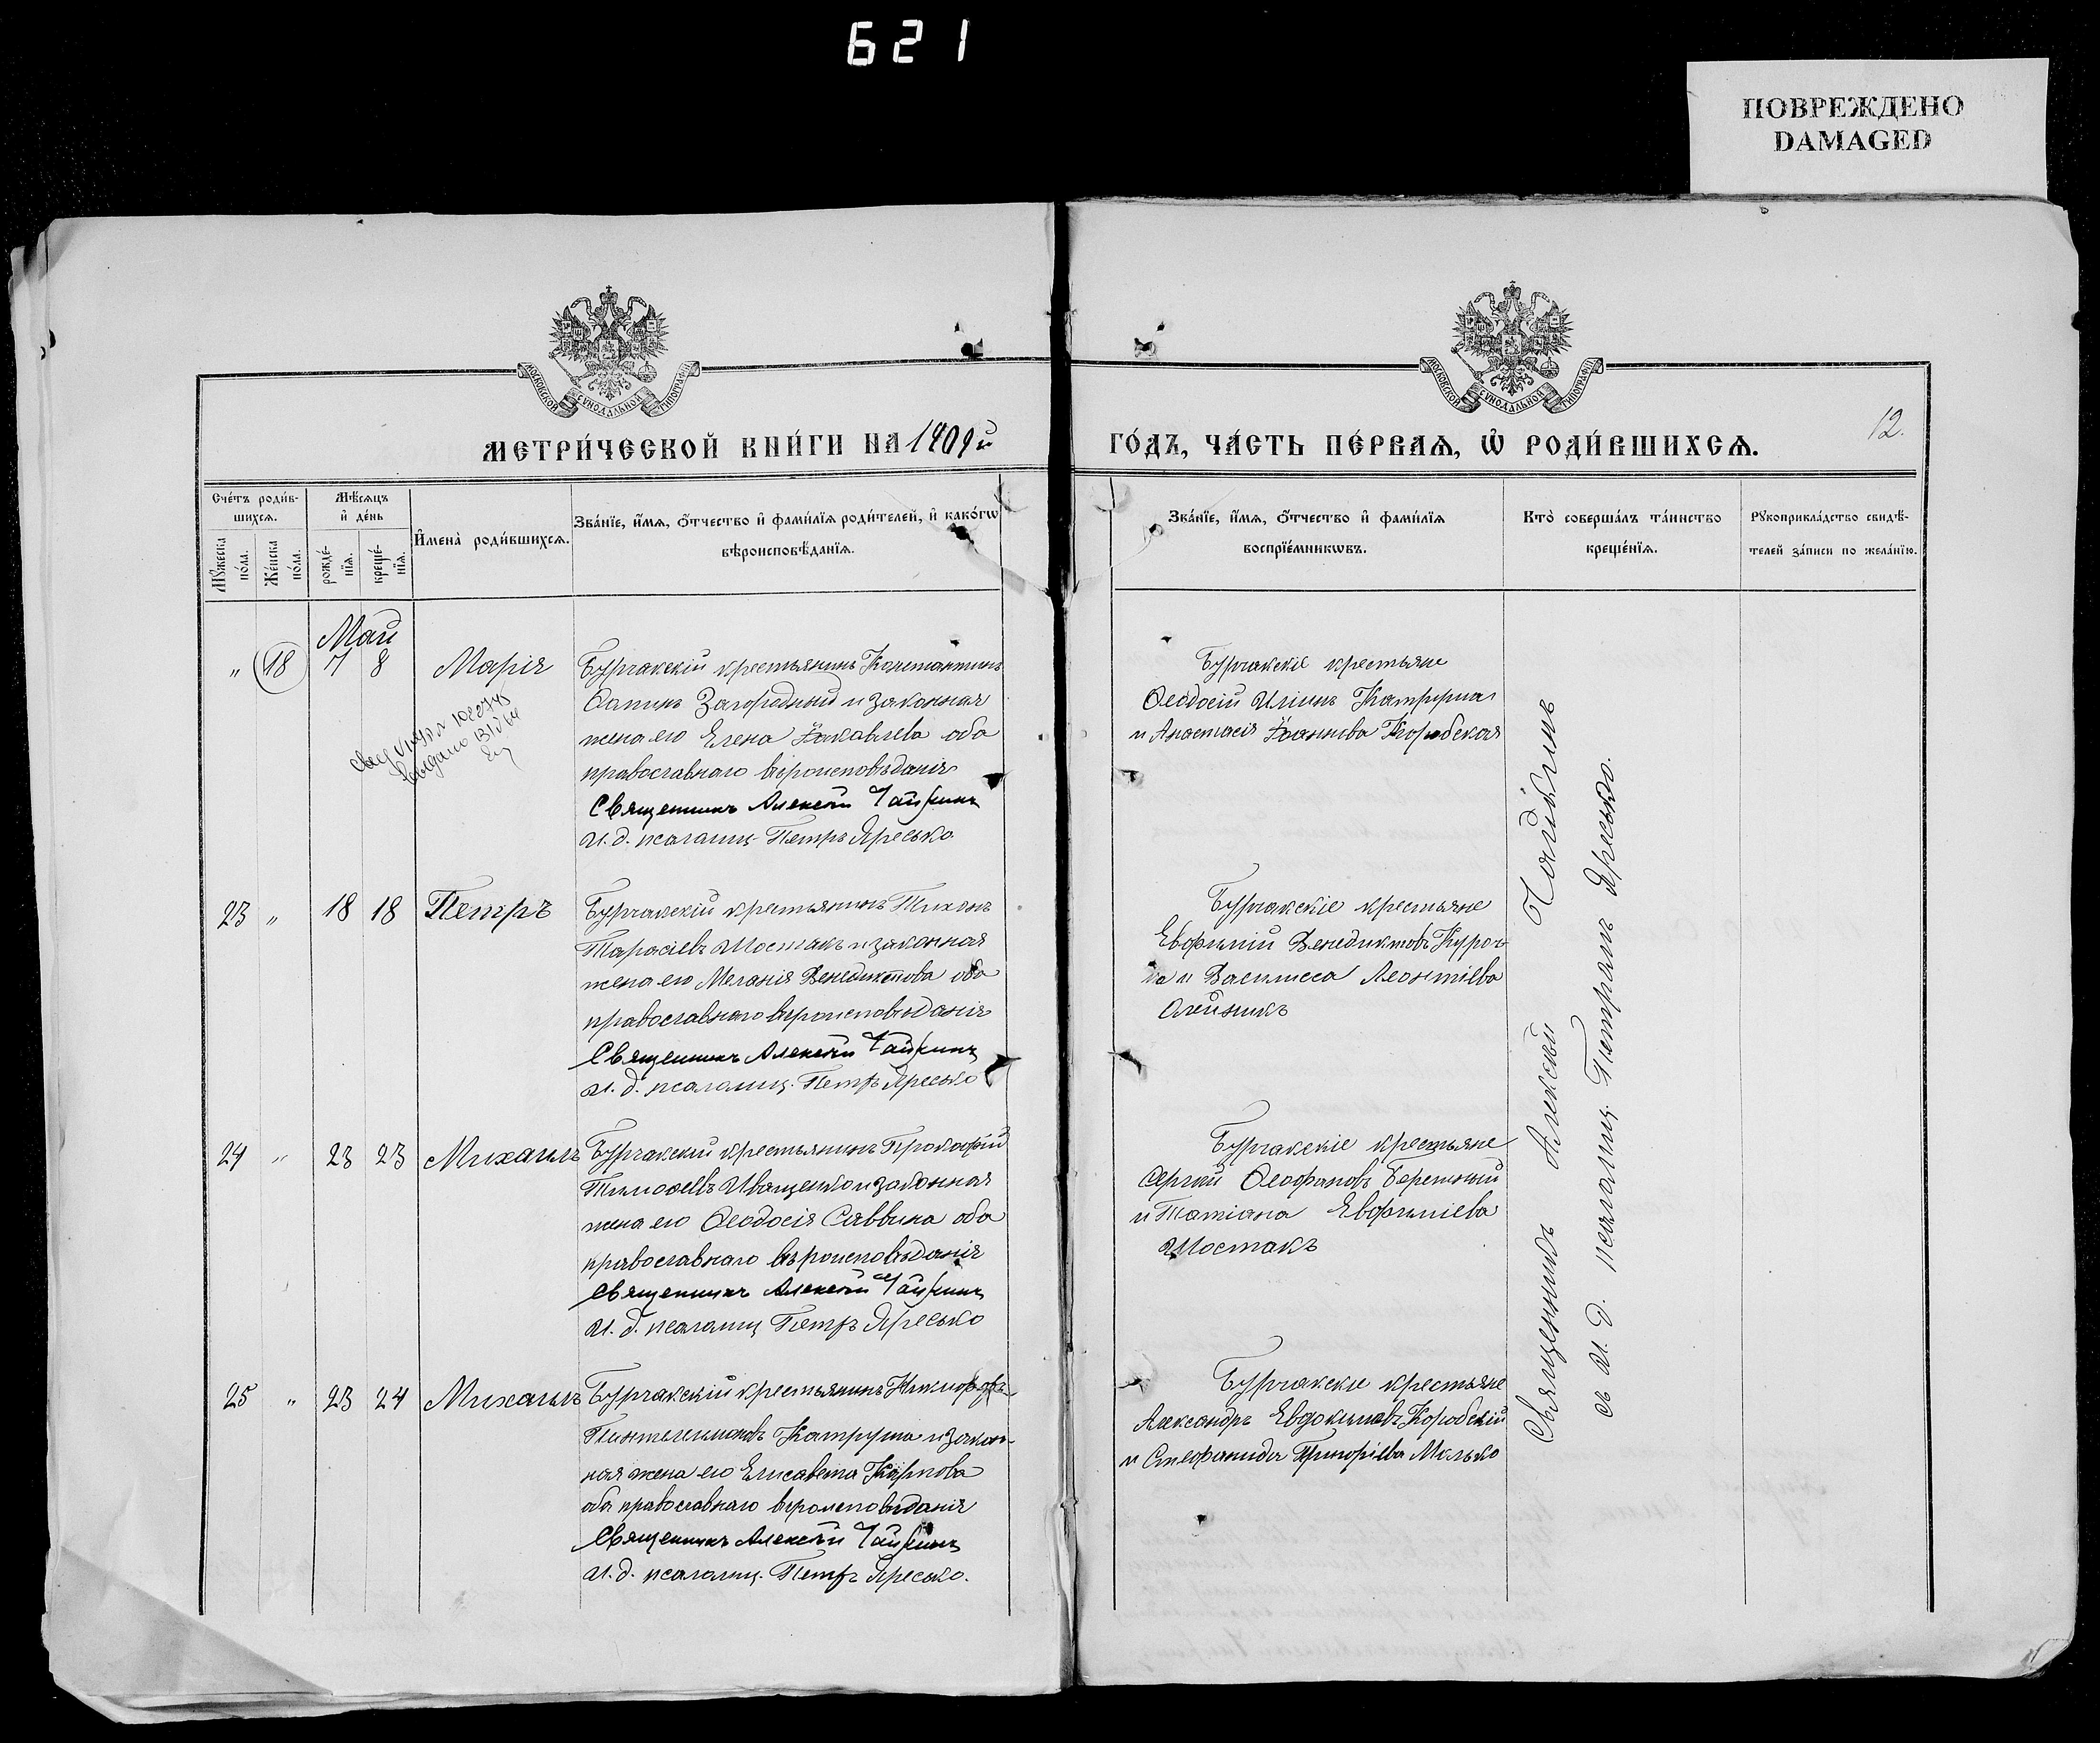 621
ПОВРЕЖДЕНО
DAMAGED
МОСКОВСКОЙ СУНОДАЛЬНОЙ ТИПОГРАФІИ
МОСКОВСКОЙ СУНОДАЛЬНОЙ ТИПОГРАФІИ
12.
МЕТРИ́ЧЕСКОЙ КНИ́ГИ НА 1909 й
ГО́ДЪ, ЧА́СТЬ ПЕ́РВАѦ, Ѽ РОДИ́ВШИХСѦ.
Сче́тъ роди́в-
шихсѧ.
Мꙋ́жеска по́ла.
Же́нска по́ла.
Мѣ́сѧцъ
и҆ де́нь
рожде́-
нїѧ.
креще́-
нїѧ.
И҆мена̀ роди́вшихсѧ.
Зва́нїе, и҆́мѧ, ѻ҆́тчество и҆ фами́лїѧ роди́телей, и҆ како́гѡ
вѣроисповѣ́данїѧ.
Зва́нїе, и҆́мѧ, ѻ҆́тчество и҆ фами́лїѧ
воспрїе́мникѡвъ.
Кто̀ соверша́лъ та́инство
креще́нїѧ.
Рꙋкоприкла́дство свидѣ́-
телей за́писи по жела́нїю.
Май
„ 18 7 8 Марія
Бурчакскій крестьянинъ Константинъ
Загородный и законная
жена его Елена Іаковлева оба
православнаго вѣроисповѣданія
Священникъ Алексѣй Чайкинъ
И. д. псаломщ. Петръ Яресько
Бурчакскіе крестьяне
Ѳеодосій Иліинъ Катруша
и Анастасія Іоаннова Коробская
23 „ 18 18 Петръ
Бурчакскій крестьянинъ Тихонъ
Тарасіевъ Шостакъ и законная
жена его Меланія Венедиктова оба
православнаго вѣроисповѣданія
Священникъ Алексѣй Чайкинъ
И. д. псаломщ. Петръ Яресько
Бурчакскіе крестьяне
Евфимій Венедиктовъ
и Василисса Леонтіева
Олейникъ
24 „ 23 23 Михаилъ
Бурчакскій крестьянинъ Прокофій
Тимоѳеевъ Иващенко и законная
жена его Ѳеодосія Саввина оба
православнаго вѣроисповѣданія
Священникъ Алексѣй Чайкинъ
И. д. псаломщ Петръ Яресько
Бурчакскіе крестьяне
Сергій Ѳеофановъ Бережный
и Татіана Евфиміева
Шостакъ
25 „ 23 24 Михаилъ
Бурчакскій крестьянинъ Никифоръ
Пантелеимоновъ Катруша и закон-
ная жена его Елисавета Карпова
оба православнаго вѣроисповѣданія
Священникъ Алексѣй Чайкинъ
И. д. псаломщ. Петръ Яресько.
Бурчакскіе крестьяне
Александръ Евдокимовъ Коробскій
и Стефанида Григоріева Малько
Священникъ Алексѣй Чайкинъ
съ И. Д. псаломщ. Петромъ Яресько.